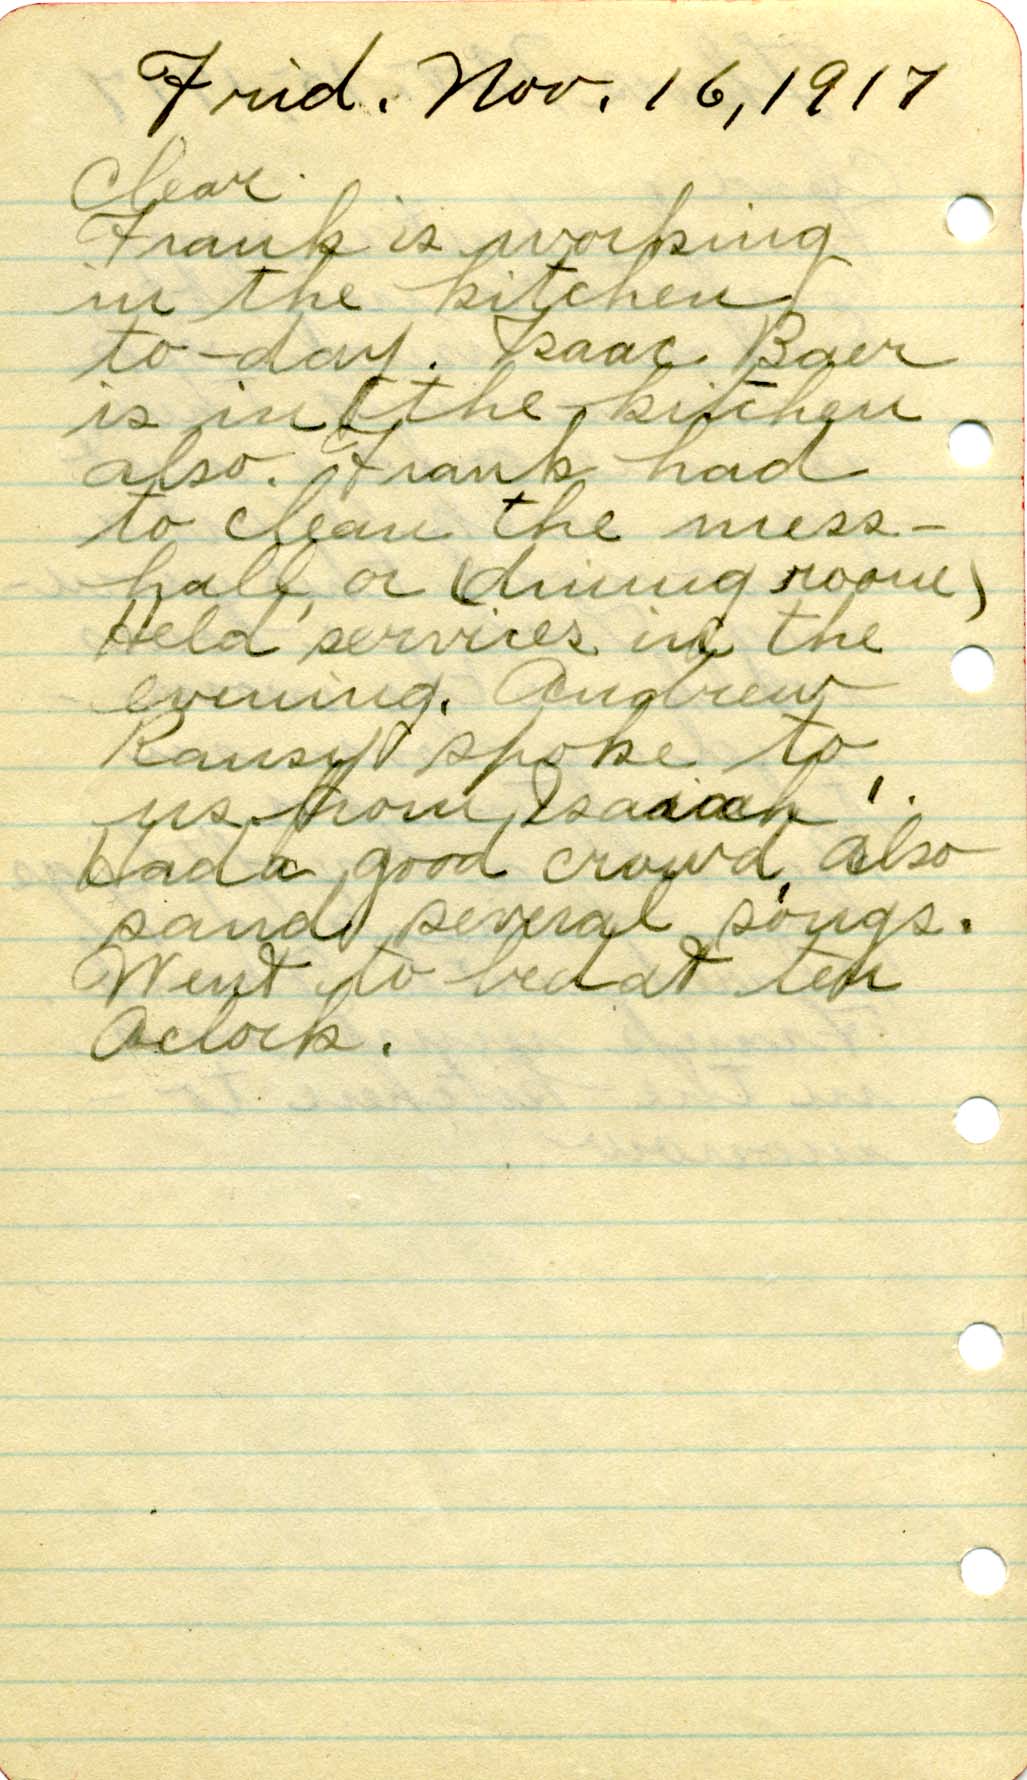 Frid. Nov. 16, 1917
Clear.
Frank is working
in the kitchen
to-day. Isaac Baer
is in the kitchen
also. Frank had
to clean the mess-
hall, or (dining room)
Held services in the
evening. Andrew
spoke to
us from Isaiah
Had a good crowd, also
sand several songs.
Went to bed at ten
Oclock.